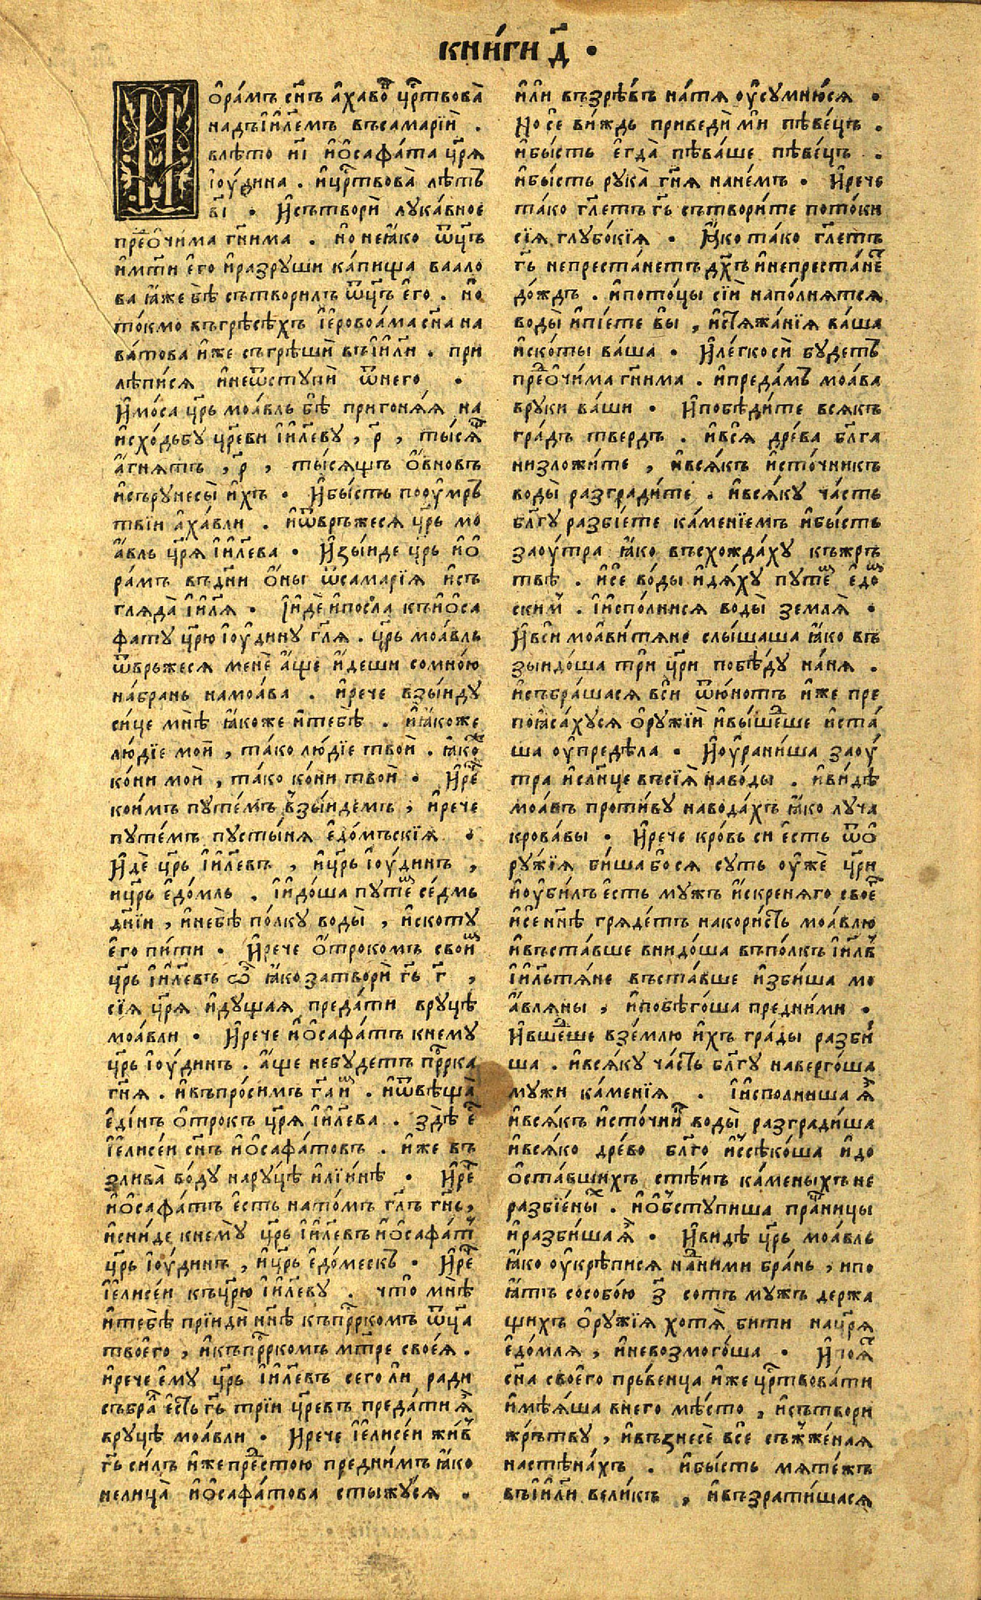 кни́ги д҃ ·
И҆ѡра́мъ сн҃ъ а҆ха́вⷪ҇ цр҃ствова̀
надъ і҆и҃лемъ въсамарі́и .
влѣ́то и҃і и҆ѡ҆сафа́та цр҃я
і҆оу́дина . и҆цр҃ствова̀ лѣ́тъ
в҃і · И҆сътворѝ лука́вное
преⷣо҆чи́ма гн҃има . но не ꙗ҆́ко ѿц҃ъ
и҆мт҃и е҆го̀ и҆разруши ка́пища ваало
ва ꙗ҆́же бѣ̀ сътвори́лъ ѿц҃ъ е҆го̀ . но
то́кмо въгрѣсѣ́хъ і҆еровоа́ма сн҃а на
ва́това и҆́же съгрѣшѝ въі҆и҃ли . при
лѣпи́ся и҆неѿступѝ ѿнего̀ ·
И҆мо́са цр҃ь моа́вль бѣ̀ пригоня́я на
и҆схо́дьбу цр҃еви і҆и҃леву , р҃ , ты́сяⷳ҇
а҆́гнятъ , р҃ , ты́сящъ ѻ҆́вновъ
и҆съру́несы̀ и҆́хъ · И҆бы́сть пооу҆́мрь
твїи а҆ха́вли . и҆ѿврь́жеся цр҃ь мо
а́вль цр҃я і҆и҃лева · И҆зы́иде цр҃ь и҆ѡ҆
ра́мъ въдн҃и ѻ҆́ны ѿсамарі́я и҆съ
гляда̀ і҆и҃ля · І҆и́де и҆посла̀ къи҆ѡ҆са
фату цр҃ю і҆оу́дину гл҃я . цр҃ь моа́вль
ѿврьжеся менѐ а҆́ще и҆́деши сомно́ю
на́брань намоа́ва . и҆рече взы́иду
си́це мнѣ̀ ꙗ҆́коже и҆тебѣ̀ . и҆ꙗ҆́коже
лю́дїе моѝ , та́ко лю́дїе твоѝ . ꙗ҆́коⷤ
ко́ни моѝ , та́ко ко́ни твоѝ · И҆реⷱ҇
коимъ путе́мъ взы́идемъ , и҆рече
путе́мъ пусты́ня е҆до́мьскїя ·
И҆и́де цр҃ь і҆и҃левъ , и҆цр҃ь і҆оу́динъ ,
и҆цр҃ь е҆до́мль . і҆идо́ша путеⷨ се́дмь
дн҃їи , и҆небѣ̀ по́лку воды̀ , и҆скоту
е҆го пи́ти · И҆рече ѻ҆́трокомъ своиⷨ
цр҃ь і҆и҃левъ ѽ ꙗ҆́ко затворѝ гь҃ г҃ ,
сїя̀ цр҃я и҆ду́щая предати вруцѣ̀
моа́вли · И҆рече и҆ѡ҆сафа́тъ кнему
цр҃ь і҆оу́динъ . а҆́ще небу́детъ прⷪ҇рка
гн҃я . и҆въпро́симъ га҃ иⷨ . и҆ѿвѣща̀
е҆ди́нъ ѻ҆́трокъ цр҃я і҆и҃лева . здѣ̀ еⷭ҇
і҆елисе́и сн҃ъ и҆ѡ҆сафа́товъ . и҆́же въ
злива̀ во́ду наруцѣ̀ и҆лїинѣ̀ · И҆реⷱ҇
и҆ѡ҆сафа́тъ е҆сть нато́мъ гл҃ъ гн҃ь ,
и҆сни́де кнемѹ̀ цр҃ь і҆и҃левъ и҆ѡ҆сафаⷮ
цр҃ь і҆оу́динъ , и҆цр҃ь е҆до́мескъ · И҆реⷱ҇
і҆елисе́и къцр҃ю і҆и҃леву . что̀ мнѣ̀
и҆тебѣ̀ прїидѝ нн҃ѣ къпрⷪ҇ркомъ ѿца
твоего̀ , и҆къпрⷪ҇ркомъ мт҃ре своея̀ .
и҆рече е҆му цр҃ь і҆и҃левъ сего̀ ли ради
събра̀ е҆сть гь҃ трїи цр҃евъ преда́ти яⷯ
вруцѣ̀ моа́вли · И҆рече і҆елисе́и жи́въ
гь҃ си́лъ и҆́же преⷣстою преднимъ ꙗ҆́ко
нелица̀ и҆ѡ҆сафа́това стыжу́ся .
и҆́ли възрѣ́въ на́тя оу҆сумню́ся ·
Но се ви́ждь приведѝ ми пѣве́цъ .
и҆бы́сть е҆гда̀ пѣва́ше пѣве́цъ .
и҆бы́сть рука̀ гн҃я нане́мъ · И҆рече
та́ко гл҃етъ гь҃ сътвори́те пото́ки
сїя глубо́кїя · Ꙗ҆́ко та́ко гл҃етъ
гь҃ непреста́нетъ дх҃ъ и҆непреста́неⷮ
до́ждь . и҆пото́цы сїи напо́лнятся
воды̀ и҆пїе́те вы̀ , и҆стяжа́нїя ва́ша
и҆ско́ты ва́ша · И҆лего́ко сѝ бу́детъ
преⷣо҆чи́ма гн҃има . и҆преда́мъ моа́ва
вруки ва́ши · И҆побѣди́те вся́къ
гра́дъ тве́рдъ . и҆вся̀ дре́ва бл҃га
низложи́те , и҆вся́къ и҆сто́чникъ
воды̀ разгради́те . и҆вся́ку ча́сть
бл҃гу разбїе́те ка́менїемъ и҆бы́сть
заоу́тра ꙗ҆́ко въсхожда́ху къжръ
твѣ̀ . и҆се во́ды и҆дя́ху путеⷨ е҆доⷨ
скиⷨ . і҆испо́лнися воды̀ земля̀ ·
И҆вси моави́тяне слы́шаша ꙗ҆́ко въ
зыидо́ша три цр҃и побѣ́ду на́ня .
и҆събра́шася вси ѿю́нотъ и҆́же пре
поꙗса́хуся ѻ҆ру́жїи и҆вы́шеⷣше и҆ста́
ша оу҆преде́ла · И҆оура́ниша заоу́
тра и҆сл҃нце въсїя̀ наво́ды . и҆ви́дѣ
моа́въ проти́ву наводахъ ꙗ҆́ко лу́ча
крова́вы · И҆рече кро́вь си е҆сть ѿѻ҆
ру́жїя би́ша бося су́ть оу҆же цр҃и
и҆оу҆би́лъ е҆сть му́жъ и҆́скреняго своеⷢ҇
и҆се нн҃ѣ гряде́тъ нако́ристь моа́влю
и҆въста́вше внидо́ша въпо́лкъ і҆и҃лвъ
і҆и҃льтяне въста́вше и҆зби́ша мо
а́вляны , и҆побѣго́ша предни́ми .
И҆вшеⷣше взе́млю и҆́хъ гра́ды разби́
ша . и҆вся́ку ча́сть бл҃гу наверго́ша
мужи ка́менїя . І҆испо́лниша яⷯ
и҆вся́къ и҆сто́чниⷦ воды̀ разгради́ша
и҆вся́ко дре́во бл҃го и҆ссѣко́ша и҆до
ѻ҆ста́вшихъ стѣ́нъ ка́меныхъ не
разбїе́ныⷯ . и҆ѡ҆бступи́ша праⷳ҇ницы
и҆разби́ша яⷯ · И҆ви́дѣ цр҃ь моа́вль
ꙗ҆́ко оу҆крѣпи́ся наⷣними бра́нь , и҆по
ꙗ҆́тъ сособо́ю з҃ со́тъ му́жъ держа
щихъ ѻ҆ру́жїя хотя̀ би́ти нацр҃я
е҆до́мля , и҆невозмого́ша · И҆пояⷮ
сн҃а своего̀ прьве́нца и҆́же цр҃твова́ти
и҆мѣ́яша внего̀ мѣ́сто , и҆сътвори
жръ́тву , и҆възнесѐ все съжже́ная
настѣна́хъ . и҆бы́сть мяте́жъ
въі҆и҃ли вели́къ , и҆възрати́шася